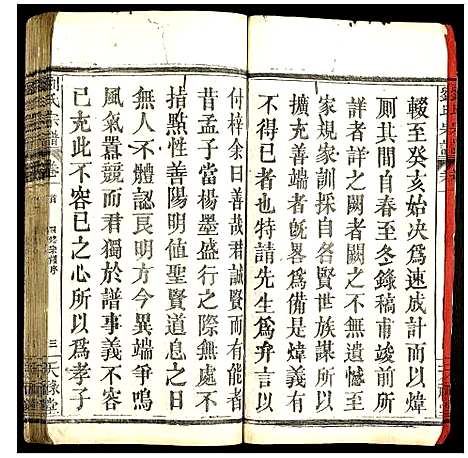 輟至癸亥始决爲速成計而以煒
厠其間自春至冬錄稿甫竣前
詳者詳之闕者闕之不無遺憾至
家規家訓採自各賢世族誠以
擴充善端者旣畧爲備是煒義有
不得已者也特請先生爲弁言以
付梓余曰善哉君誠賢而有能者
昔孟子當楊墨盛行之際無處不
指點性善陽明值聖賢道息之日
無人不體認良明方今異端爭鳴
風氣囂競而君獨於譜事義不容
已充此不容已之心所以爲孝子
劉氏宗譜
卷一
首
三
天祿堂